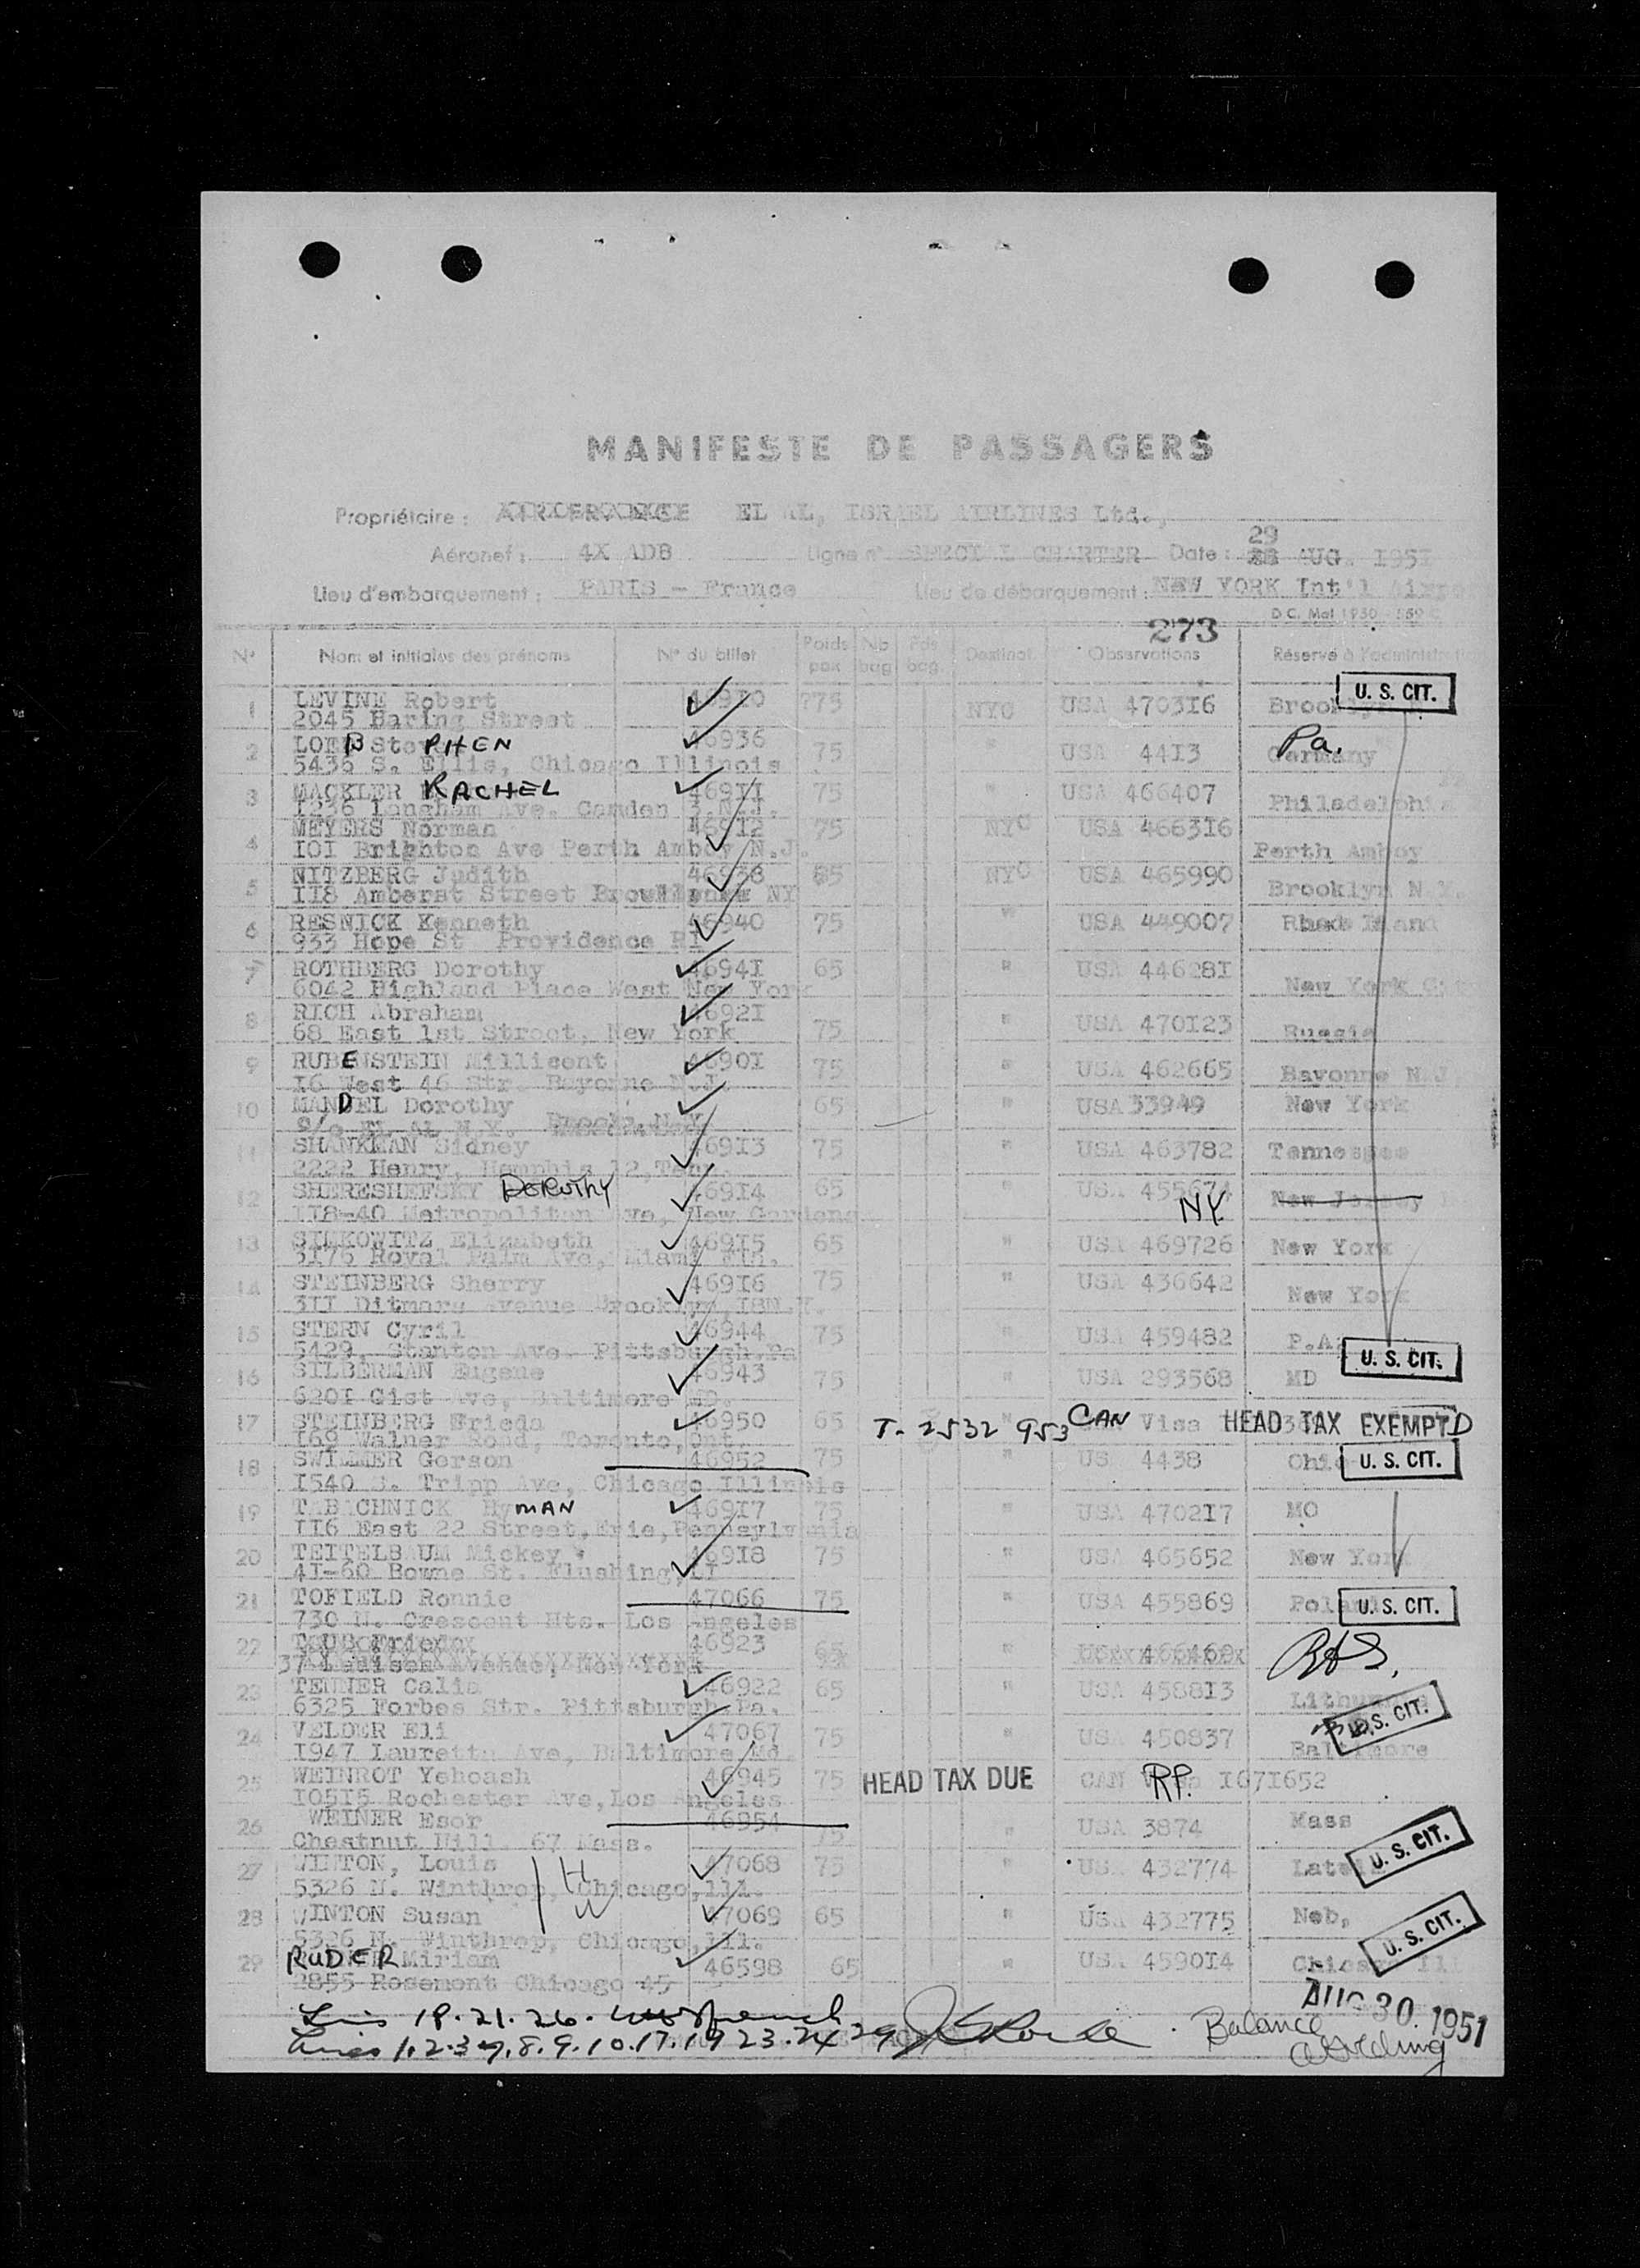 MANIFESTE DE PASSAGERS
Propriétaire : AIR FRANCE EL AL, ISRAEL AIRLINES Ltd.,
29
Aéronef : 4X ADB Ligne n° SPECIAL CHARTER Date : 28 AUG. 1951
Lieu d'embarquement : PARIS - France Lieu de débarquement : NEW YORK Int'l
D.C. Mat 1950 - 559
273
N° Nom et initiales des prénoms N° du billet Poids pax Nb bag Pds bag. Destinat. Observations Réservé à l'administration
1 LEVINE Robert 46910 775 NYC USA 470316 Brooklyn U. S. CIT.
2045 Baring Street
2 LOEB STEPHEN 46936 75 " USA 4413 Germany Pa.
5436 S. Ellis, Chicago Illinois
3 MACKLER RACHEL 46911 75 " USA 466407 Philadelphia
1236 Langham Ave. Camden 3, N.J.
4 MEYERS Norman 46912 75 NYC USA 466316 Perth Amboy
101 Brighton Ave Perth Amboy N.J.
5 NITZBERG Judith 46938 85 NYC USA 465990 Brooklyn N.Y.
118 Amherst Street NY
6 RESNICK Kenneth 46940 75 " USA 449007 Rhode Island
933 Hope St Providence RI
7 ROTHBERG Dorothy 46941 65 " USA 446281 New York
6042 Highland Place West New York
8 RICH Abraham 46921 75 " USA 470123 Russia
68 East 1st Street, New York
9 RUBENSTEIN Millicent 46901 75 " USA 462665 Bayonne N.J
16 West 46 Str. Bayonne N.J.
10 MANDEL Dorothy 65 " USA 33949 New York
c/o EL AL N.Y.
11 SHANKMAN Sidney 46913 75 " USA 463782 Tennessee
2222 Henry, Memphis 12, Tenn.
12 SHERESHEFSKY DOROTHY 46914 65 " USA 455674 NY. New Jersey
118-40 Metropolitan Ave, Kew Gardens
13 SILKOWITZ Elizabeth 46915 65 " USA 469726 New York
3175 Royal Palm Ave, Miami Fla.
14 STEINBERG Sherry 46916 75 " USA 436642 New York
311 Ditmars Avenue Brooklyn, 18N.Y.
15 STERN Cyril 46944 75 " USA 459482 P.A. U. S. CIT.
5429, Stanton Ave. Pittsburgh, Pa
16 SILBERMAN Eugene 46943 75 " USA 293568 MD
6201 Gist Ave, Baltimore MD.
17 STEINBERG Frieda 46950 65 T- 2532 953 CAN Visa HEAD TAX EXEMPTD
169 Walner Road, Toronto, Ont.
18 SWIMMER Gerson 46952 75 " US 4438 Ohio U. S. CIT.
1540 S. Tripp Ave, Chicago Illinois
19 TABACHNICK HyMAN 46917 75 " USA 470217 MO
116 East 22 Street, Erie, Pennsylvania
20 TEITELBAUM Mickey 46918 75 " USA 465652 New York
41-60 Bowne St. Flushing, LI
21 TOFIELD Ronnie 47066 75 " USA 455869 Poland U. S. CIT.
730 N. Crescent Hts. Los Angeles
22 46923 65 "
37 Madison Avenue, New York
23 TENNER Calia 46922 65 " USA 458813 Lithuania
6325 Forbes Str. Pittsburgh Pa.
24 VELDER Eli 47067 75 " USA 450837 Baltimore U. S. CIT.
1947 Lauretta Ave, Baltimore, Md.
25 WEINROT Yehoash 46945 75 HEAD TAX DUE CAN Visa RP. 1671652
10515 Rochester Ave, Los Angeles
26 WEINER Esor 46954 75 " USA 3874 Mass
Chestnut Hill. 67 Mass. U. S. CIT.
27 WINTON, Louis H 47068 75 " USA 432774
5326 N. Winthrop, Chicago, Ill.
28 WINTON Susan W 47069 65 " USA 432775 Neb, U. S. CIT.
5326 N. Winthrop, Chicago, Ill.
29 RUDER Miriam 46598 65 " USA 459014 Chicago Ill
2855 Rosemont Chicago 45
AUG 30. 1951
18. 21. 26.
Lines 1. 2. 3 7. 8. 9. 10. 17. 19 23. 24 29 Balance